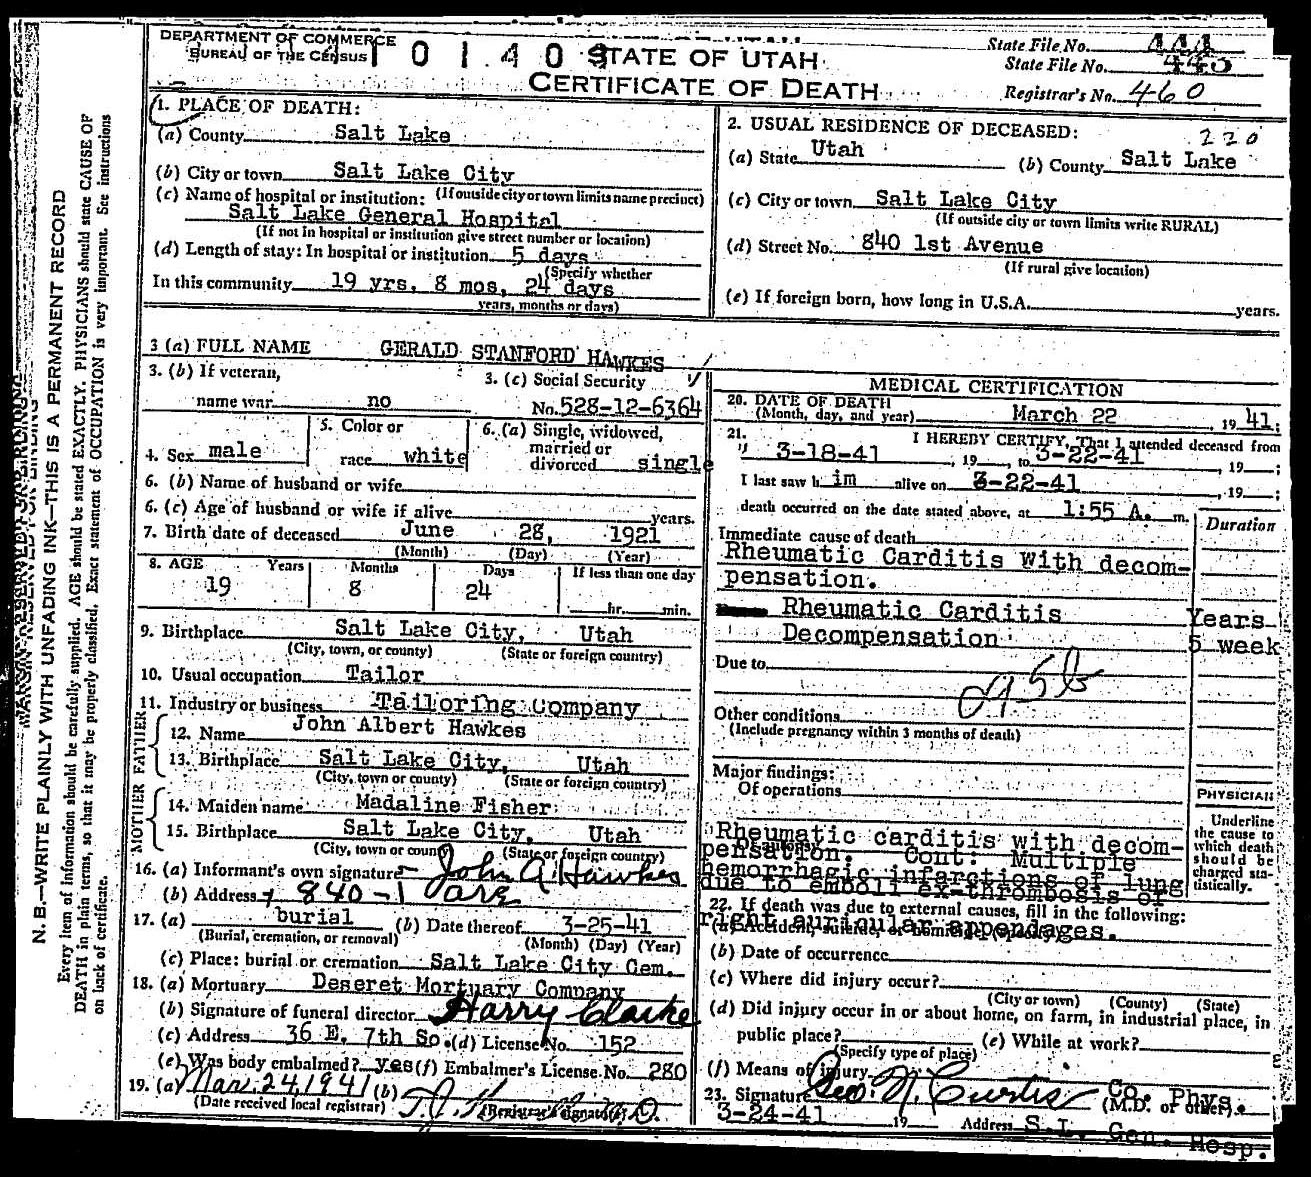 DEPARTMENT OF COMMERCE
BUREAU OF THE CENSUS
STATE OF UTAH
CERTIFICATE OF DEATH
State File No.
State File No.
Registrar's No. 460
1. PLACE OF DEATH:
(a) County Salt Lake
(b) City or town Salt Lake City
(If outside city or town limits name precinct)
(c) Name of hospital or institution:
Salt Lake General Hospital
(If not in hospital or institution give street number or location)
(d) Length of stay: In hospital or institution 5 days
(Specify whether
In this community 19 yrs. 8 mos, 24 days
years, months or days)
2. USUAL RESIDENCE OF DECEASED:
220
(a) State Utah (b) County Salt Lake
(c) City or town Salt Lake City
(If outside city or town limits write RURAL)
(d) Street No. 840 1st Avenue
(If rural give location)
(e) If foreign born, how long in U.S.A. years.
3 (a) FULL NAME GERALD STANFORD HAWKES
3. (b) If veteran,
name war no
3. (c) Social Security
No. 528-12-6364
4. Sex male
5. Color or
race white
6. (a) Single, widowed,
married or
divorced single
6. (b) Name of husband or wife
6. (c) Age of husband or wife if alive years.
7. Birth date of deceased June 28, 1921
(Month) (Day) (Year)
8. AGE Years Months Days If less than one day
19 8 24 hr. min.
9. Birthplace Salt Lake City, Utah
(City, town, or county) (State or foreign country)
10. Usual occupation Tailor
11. Industry or business Tailoring Company
FATHER
12. Name John Albert Hawkes
13. Birthplace Salt Lake City, Utah
(City, town or county) (State or foreign country)
MOTHER
14. Maiden name Madaline Fisher
15. Birthplace Salt Lake City, Utah
(City, town or county) (State or foreign country)
16. (a) Informant's own signature John A. Hawkes
(b) Address 840 - 1 ave
17. (a) burial (b) Date thereof 3-25-41
(Burial, cremation, or removal) (Month) (Day) (Year)
(c) Place: burial or cremation Salt Lake City Cem.
18. (a) Mortuary Deseret Mortuary Company
(b) Signature of funeral director Harry Clarke
(c) Address 36 E. 7th So. (d) License No. 152
(e) Was body embalmed? yes (f) Embalmer's License No. 280
19. (a) Mar. 24, 1941 (b)
(Date received local registrar) (Registrar's signature)
MEDICAL CERTIFICATION
20. DATE OF DEATH
(Month, day, and year) March 22, 1941;
21. I HEREBY CERTIFY, That I attended deceased from
3-18-41, 19 , to 3-22-41, 19 ;
I last saw h im alive on 3-22-41, 19 ;
death occurred on the date stated above, at 1:55 A. m.
Duration
Immediate cause of death
Rheumatic Carditis With decom-
pensation.
Rheumatic Carditis Years
Decompensation 5 week
Due to
95b
Other conditions
(Include pregnancy within 3 months of death)
Major findings:
Of operations
PHYSICIAN
Underline
the cause to
which death
should be
charged sta-
tistically.
Rheumatic carditis with decom-
pensation. Cont: Multiple
hemorrhagic infarctions of lung
due to emboli ex-thrombosis of
22. If death was due to external causes, fill in the following:
right auricular appendages.
(a) Accident, suicide, or homicide (specify)
(b) Date of occurrence
(c) Where did injury occur?
(City or town) (County) (State)
(d) Did injury occur in or about home, on farm, in industrial place, in
public place? (e) While at work?
(Specify type of place)
(f) Means of injury
23. Signature Geo. N. Curtis Co. Phys.
(M.D. or other)
3-24-41 19 Address S.L. Gen. Hosp.
MARGIN RESERVED FOR BINDING
N. B.—WRITE PLAINLY WITH UNFADING INK—THIS IS A PERMANENT RECORD
Every item of information should be carefully supplied. AGE should be stated EXACTLY. PHYSICIANS should state CAUSE OF
DEATH in plain terms, so that it may be properly classified. Exact statement of OCCUPATION is very important. See instructions
on back of certificate.